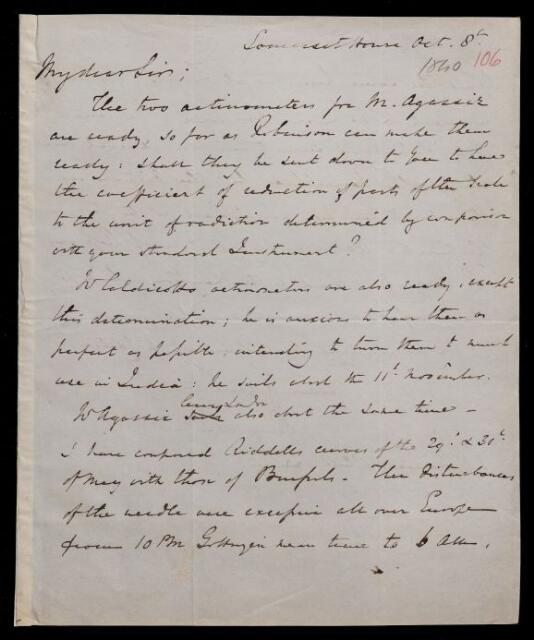 Somerset House Oct. 8th
1840 106
My dear Sir;
The two actinometers for M. Agassiz
are ready, so far as Robinson can make them
ready: shall they be sent down to you to have
the coefficient of reduction of parts of the scale
to the unit of radiation determined by comparison
with your standard Instrument?
Mr Caldecott's actinometers are also ready, except
this determination; he is anxious to have them as
perfect as possible, intending to turn them to much
use in India: he sails abt the 11th November.
Mr Agassiz also abt the same time –
I have compared Riddell's curves of the 29th & 30th
of May with those of Brussels. The disturbances
of the needle were excessive all over Europe
from 10 PM Gottingen mean time to 6 AM.